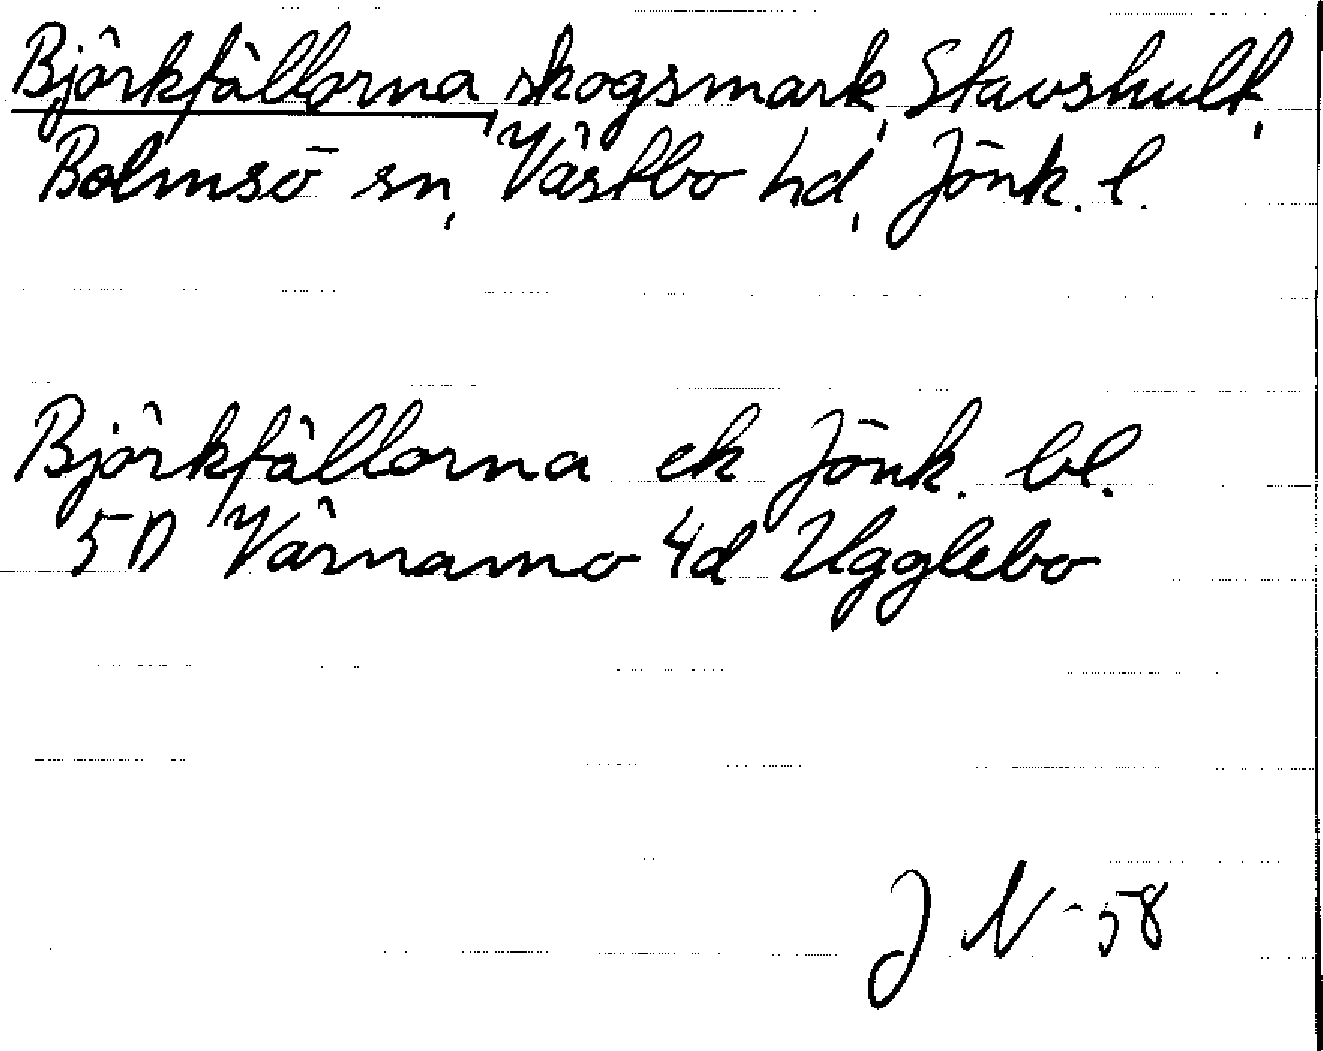 Björkfällorna, skogsmark, Stavshult,
Bolmsö sn, Västbo hd, Jönk. l.
Björkfällorna ek Jönk. bl.
5D Värnamo 4d Ugglebo
J N -58